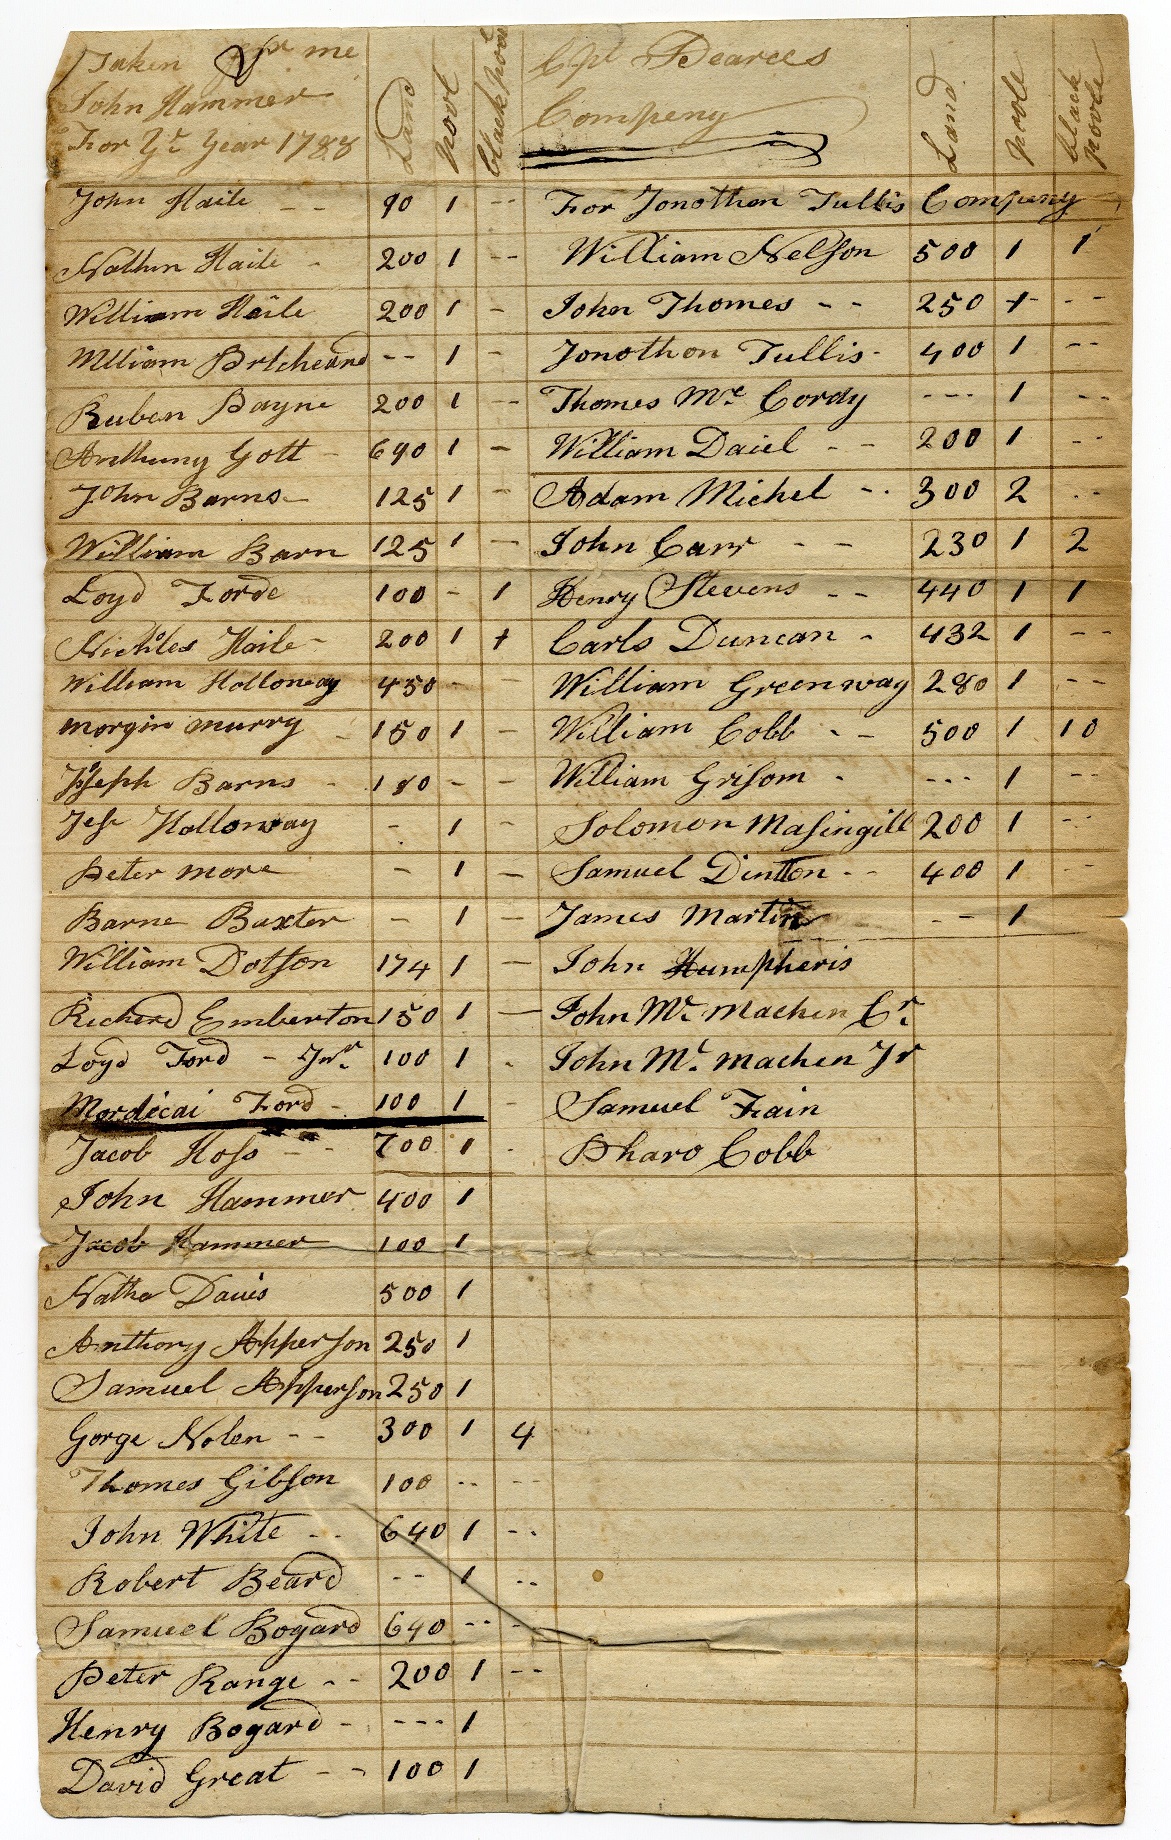 Taken pr me
John Hammer
For Ye Year 1788
Land
poole
black poole
John Haile -- 90 1 --
Nathn Haile - 200 1 --
William Haile 200 1 -
William Britcheard -- 1 -
Ruben Payne 200 1 --
Anthuny Gott - 690 1 -
John Barns - 125 1 -
William Barn 125 1 -
Loyd Forde 100 - 1
Nichles Haile - 200 1 +
William Holloway 450 - -
morgin murry - 150 1 -
Joseph Barns - 180 - -
Jese Holloway - 1 -
Peter more - 1 -
Barne Baxter - 1 -
William Dotson 174 1 -
Richerd Emberton 150 1 -
Loyd Ford - Jnr 100 1 -
Mordicai Ford - 100 1 -
Jacob Hoss -- 700 1 -
John Hammer 400 1
Jacob Hammer 100 1
Natha Davis 500 1
Anthory Apperson 250 1
Samuel Apperson 250 1
Gorge Nolen -- 300 1 4
Thomes Gibson 100 -- --
John White -- 640 1 --
Robert Beard -- 1 --
Samuel Bogard 640 -- -
Peter Range -- 200 1 --
Henry Bogard - --- 1
David Great -- 100 1
Cpt Pearces
Compeny
Land
poole
black poole
For Jonothon Tullis Compeny
William Nelson 500 1 1
John Thomes -- 250 + --
Jonothon Tullis - 400 1 --
Thomes Mc Cordy --- 1 --
William Daiel -- 200 1 --
Adam Michel -- 300 2 --
John Carr -- 230 1 2
Henry Stevens -- 440 1 1
Carls Duncan - 432 1 --
William Greenway 280 1 --
William Cobb -- 500 1 10
William Grisom - --- 1 --
Solomon Masingill 200 1 --
Samuel Dintton -- 400 1 -
James Martin -- 1
John Humpheris
John Mc machen Cr
John Mc machen Jr
Samuel Fain
Pharo Cobb